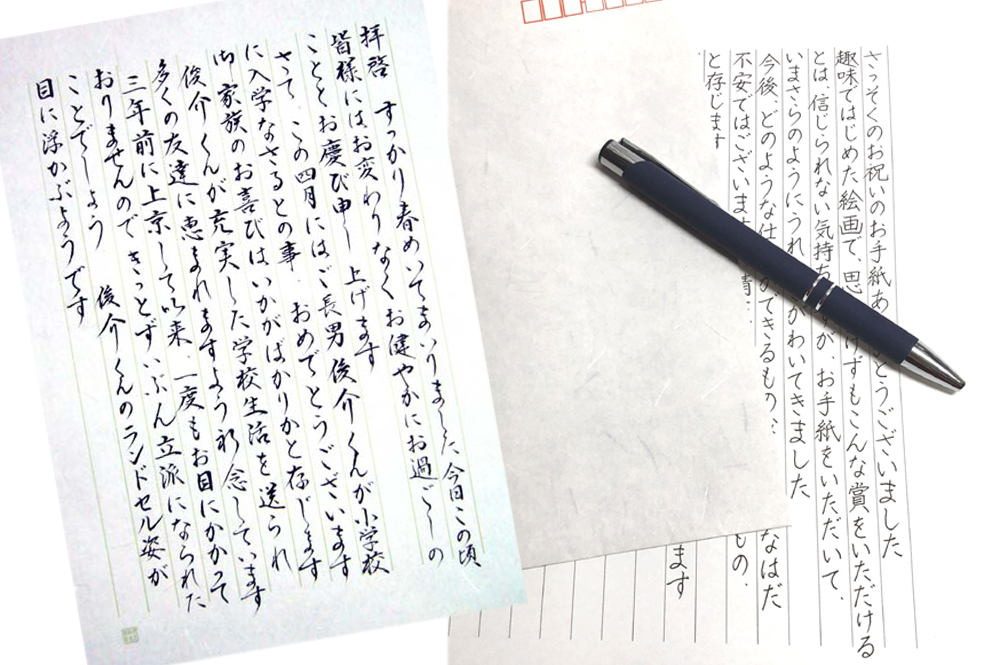 拝啓 すっかり春めいてまいりました 今日この頃
皆様にはお変わりなくお健やかにお過ごしの
ことお慶び申し上げます
さて、この四月にはご長男俊介くんが小学校
に入学なさるとの事、おめでとうございます
御家族のお喜びはいかがばかりかと存じます
俊介くんが充実した学校生活を送られ
多くの友達に恵まれますよう祈念しています
三年前に上京して以来、一度もお目にかかって
おりませんので きっとずいぶん立派になられた
ことでしょう 俊介くんのランドセル姿が
目に浮かぶようです
さっそくのお祝いのお手紙あ とうございました
趣味ではじめた絵画で、思 けずもこんな賞をいただける
とは、信じられない気持ち が、お手紙をいただいて、
いまさらのようにうれ がわいてきました
今後、どのような仕 のできるもの なはだ
不安ではございま もの、
と存じます
ます